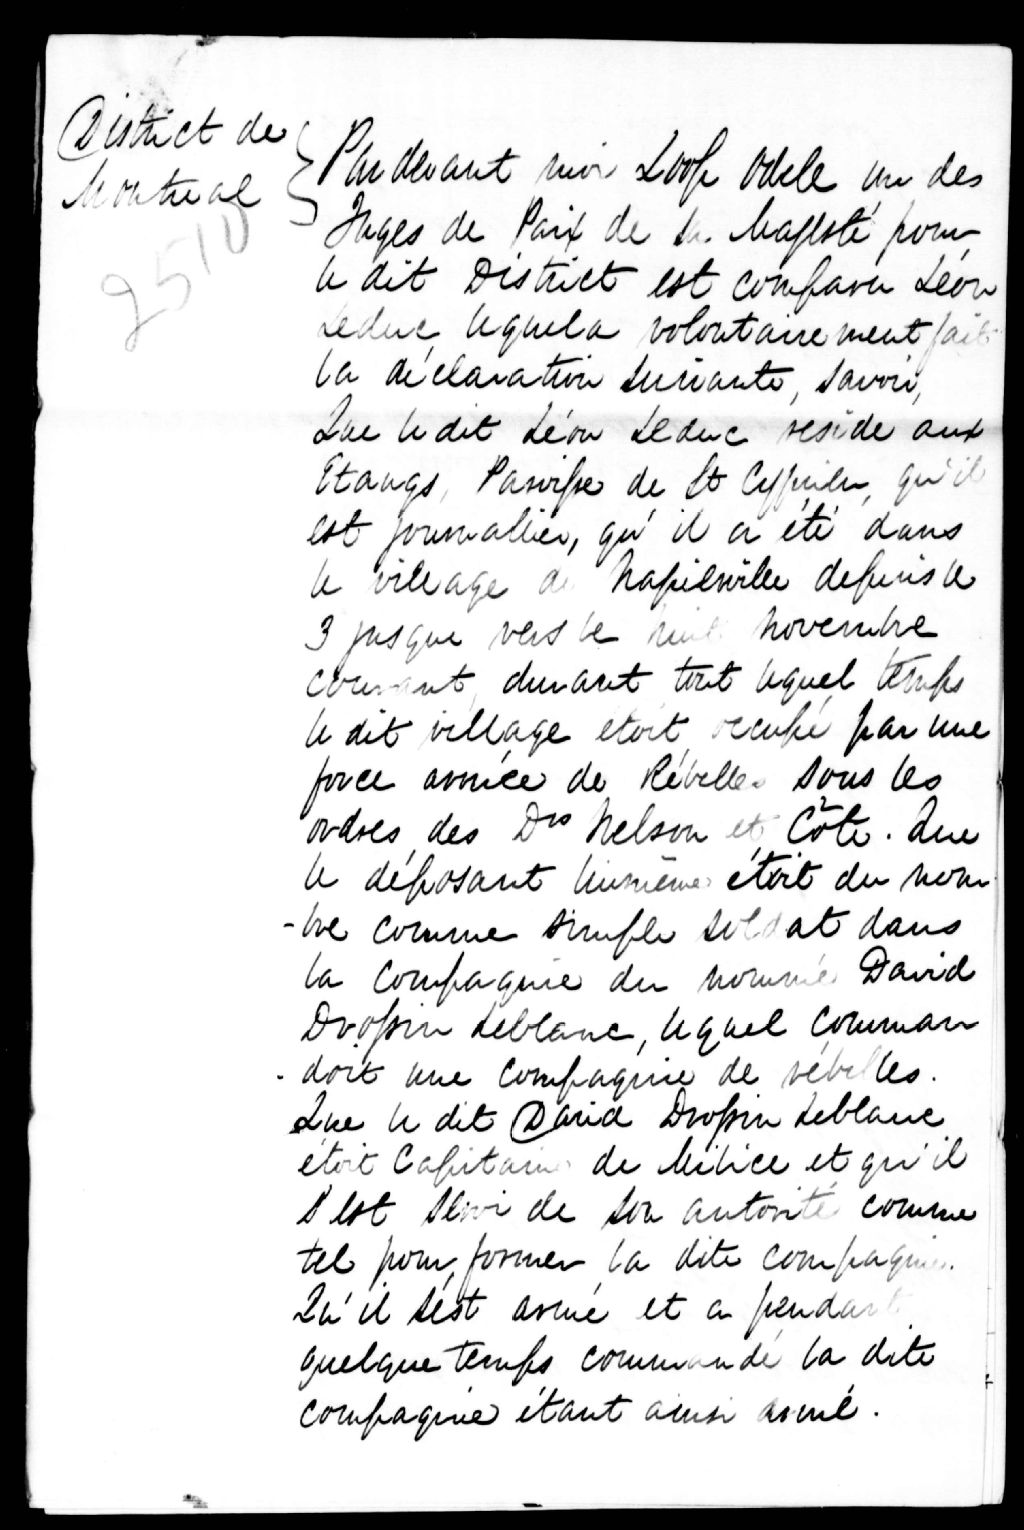 District de
Montreal
2510
Pardevant moi Loop Odele un des
Juges de Paix de Sa Majesté pour
le dit District est comparu Léon
Leduc lequel a volontairement fait
la déclaration suivante, savoir,
Que le dit Léon Leduc reside aux
Etangs, Paroisse de St Cyprien, qu'il
est journallier, qu'il a été dans
le village de Napierville depuis le
3 jusque vers le huit Novembre
courant, durant tout lequel temps
le dit village étoit occupé par une
force armée de Rébelles sous les
ordres des Drs Nelson et Côte. Que
le déposant luimême étoit du nom
-bre comme simple soldat dans
la compagnie du nommé David
Drossin Leblanc, lequel comman
-doit une compagnie de rébelles.
Que le dit David Drossin Leblanc
étoit Capitaine de Milice et qu'il
s'est servi de son autorité comme
tel pour former la dite compagnie.
Qu'il s'est armé et a pendant
quelque temps commandé la dite
compagnie étant ainsi armé.